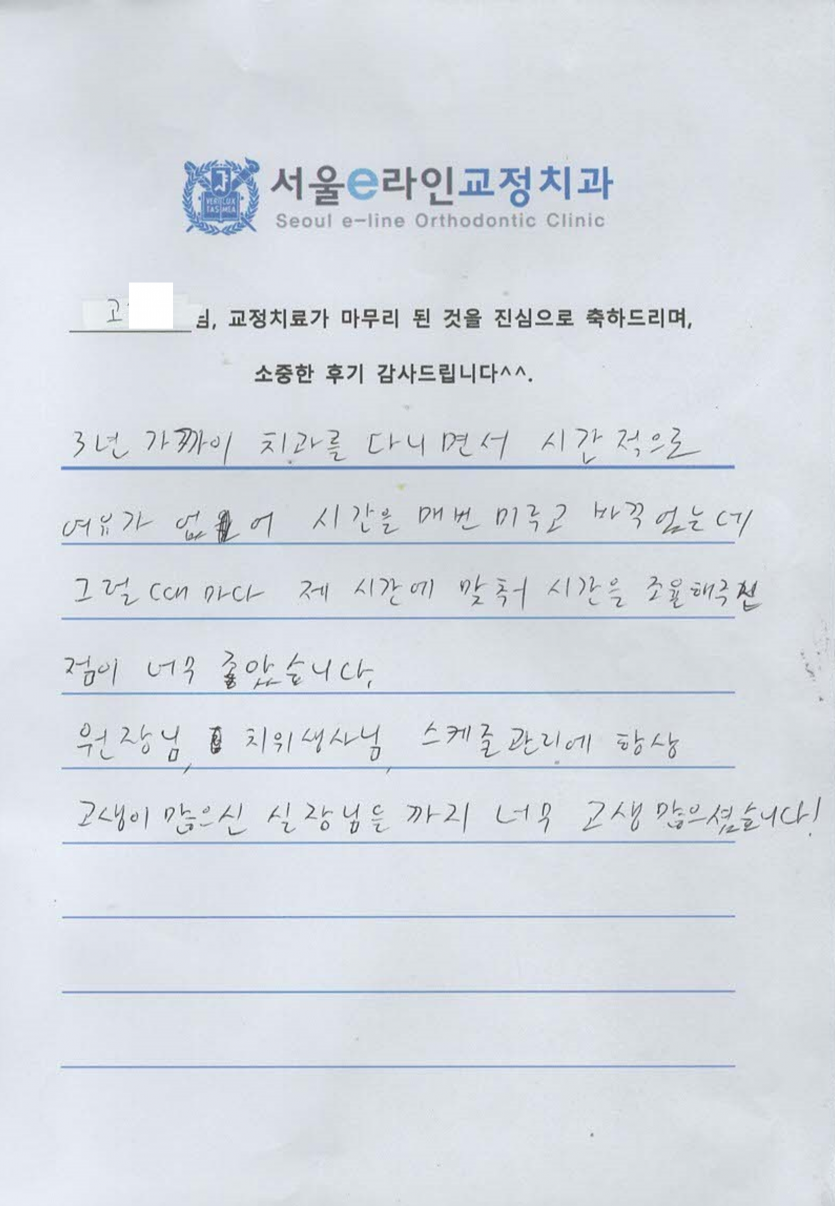 VERI LUX TAS MEA
서울e라인교정치과
Seoul e-line Orthodontic Clinic
고 님, 교정치료가 마무리 된 것을 진심으로 축하드리며,
소중한 후기 감사드립니다^^.
3년 가까이 치과를 다니면서 시간적으로
여유가 없어 시간을 매번 미루고 바꾹었는데
그럴 때 마다 제 시간에 맞춰 시간을 조율해주신
점이 너무 좋았습니다.
원장님, 치위생사님, 스케줄관리에 항상
고생이 많으신 실장님들 까지 너무 고생 많으셨습니다!